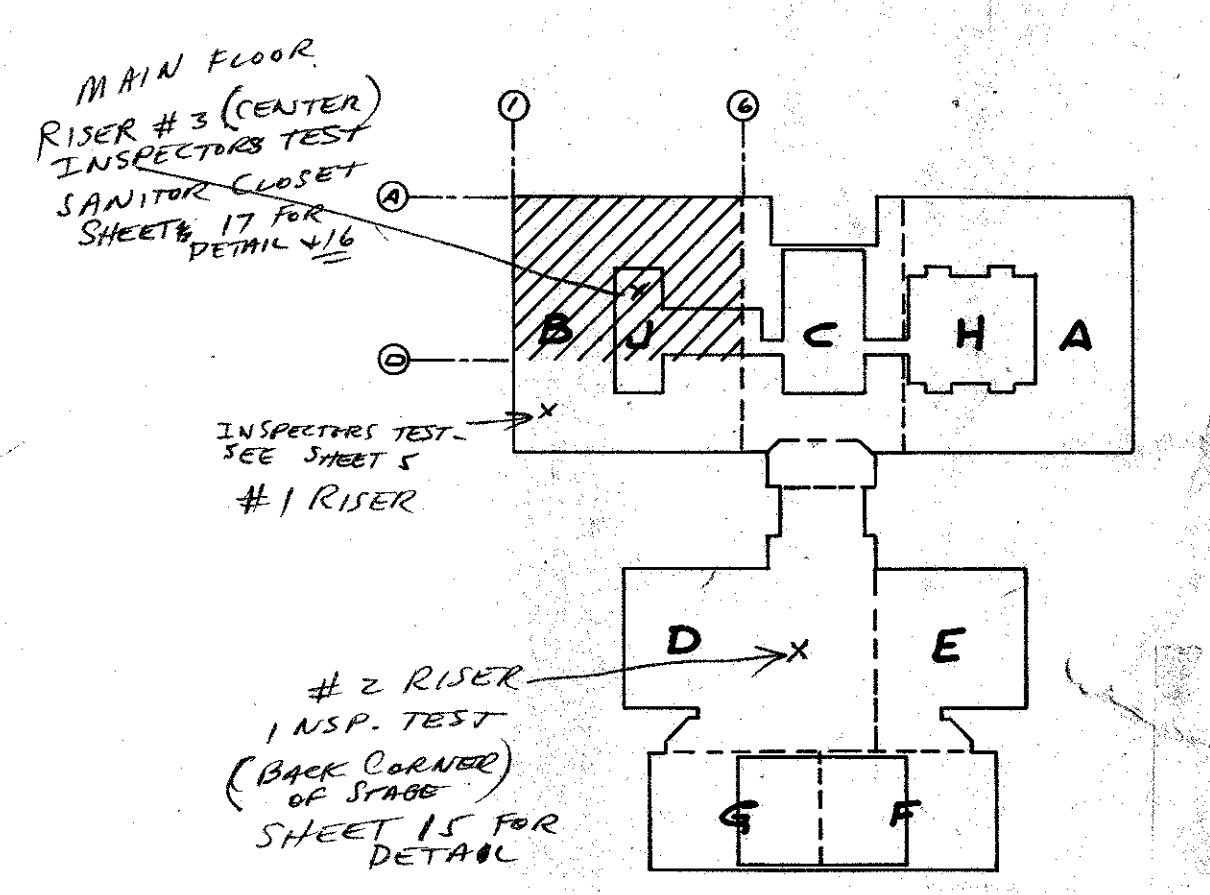 MAIN FLOOR
RISER # 3 (CENTER)
INSPECTORS TEST
SANITOR CLOSET
SHEET 17 FOR
DETAIL + 16
1
6
A
D
B
J
C
H
A
INSPECTORS TEST-
SEE SHEET 5
# 1 RISER
D
E
# 2 RISER
INSP. TEST
(BACK CORNER)
OF STAGE
SHEET 15 FOR
DETAIL
G
F